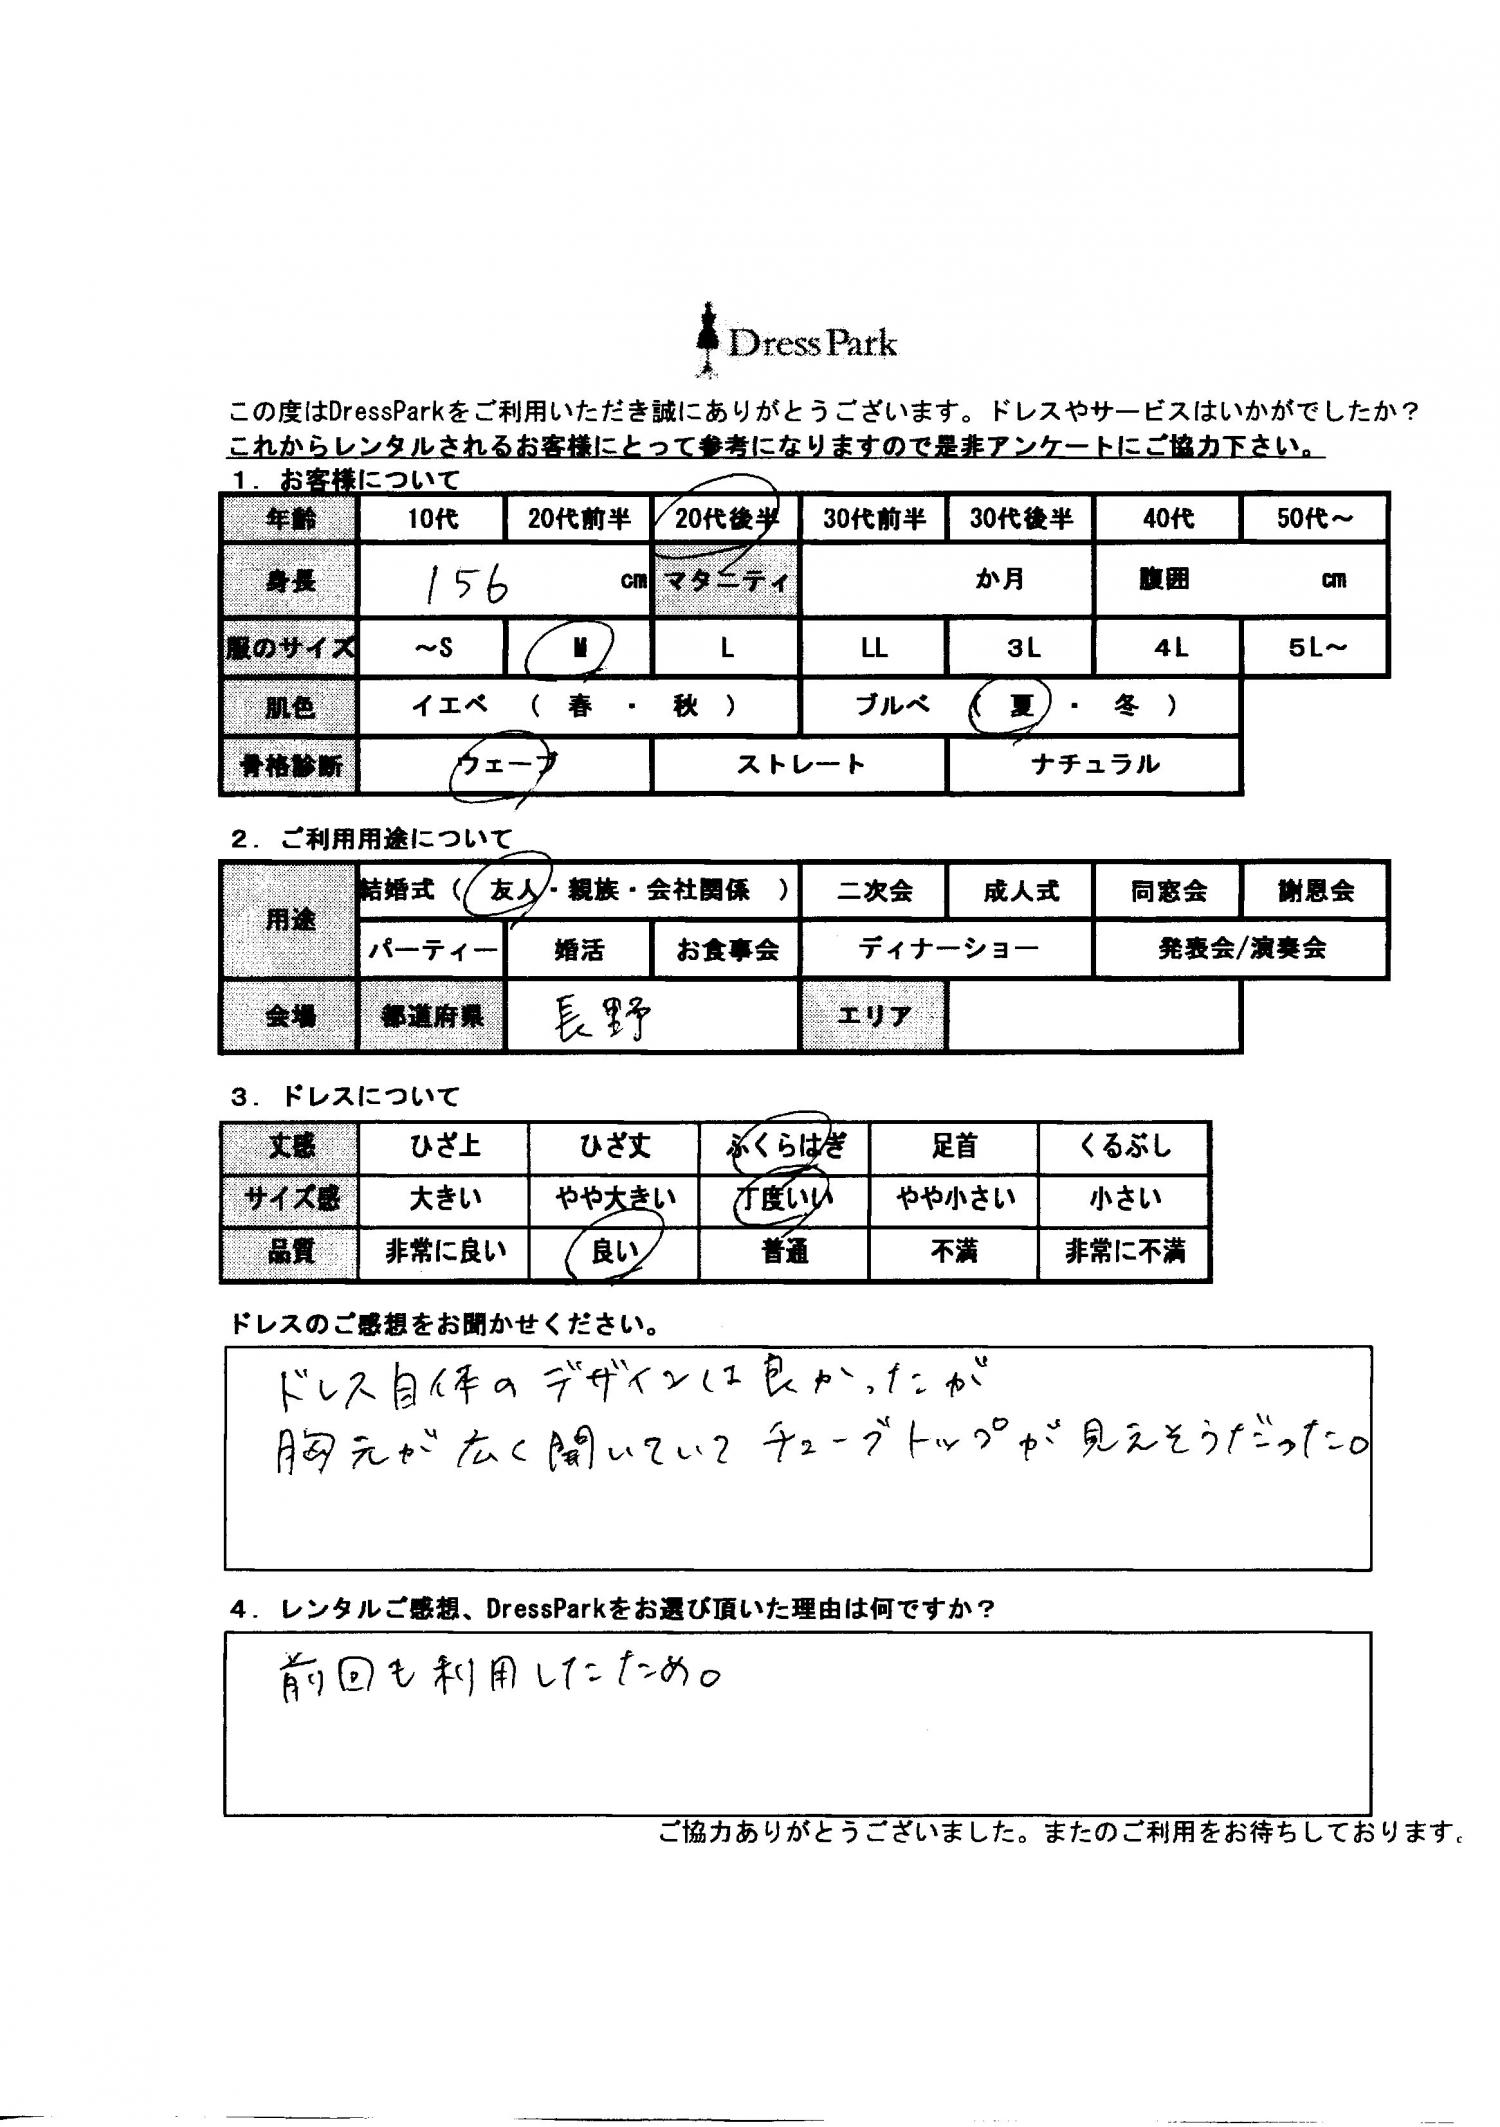 Dress Park
この度はDressParkをご利用いただき誠にありがとうございます。ドレスやサービスはいかがでしたか？
これからレンタルされるお客様にとって参考になりますので是非アンケートにご協力下さい。
１．お客様について
年齢 10代 20代前半 20代後半 30代前半 30代後半 40代 50代～
身長 156 cm マタニティ か月 腹囲 cm
服のサイズ ～S M L LL 3L 4L 5L～
肌色 イエベ （ 春 ・ 秋 ） ブルベ （ 夏 ・ 冬 ）
骨格診断 ウェーブ ストレート ナチュラル
２．ご利用用途について
用途 結婚式（ 友人・親族・会社関係 ） 二次会 成人式 同窓会 謝恩会
パーティー 婚活 お食事会 ディナーショー 発表会/演奏会
会場 都道府県 長野 エリア
３．ドレスについて
丈感 ひざ上 ひざ丈 ふくらはぎ 足首 くるぶし
サイズ感 大きい やや大きい 丁度いい やや小さい 小さい
品質 非常に良い 良い 普通 不満 非常に不満
ドレスのご感想をお聞かせください。
ドレス自体のデザインは良かったが
胸元が広く開いていてチューブトップが見えそうだった。
４．レンタルご感想、DressParkをお選び頂いた理由は何ですか？
前回も利用したため。
ご協力ありがとうございました。またのご利用をお待ちしております。